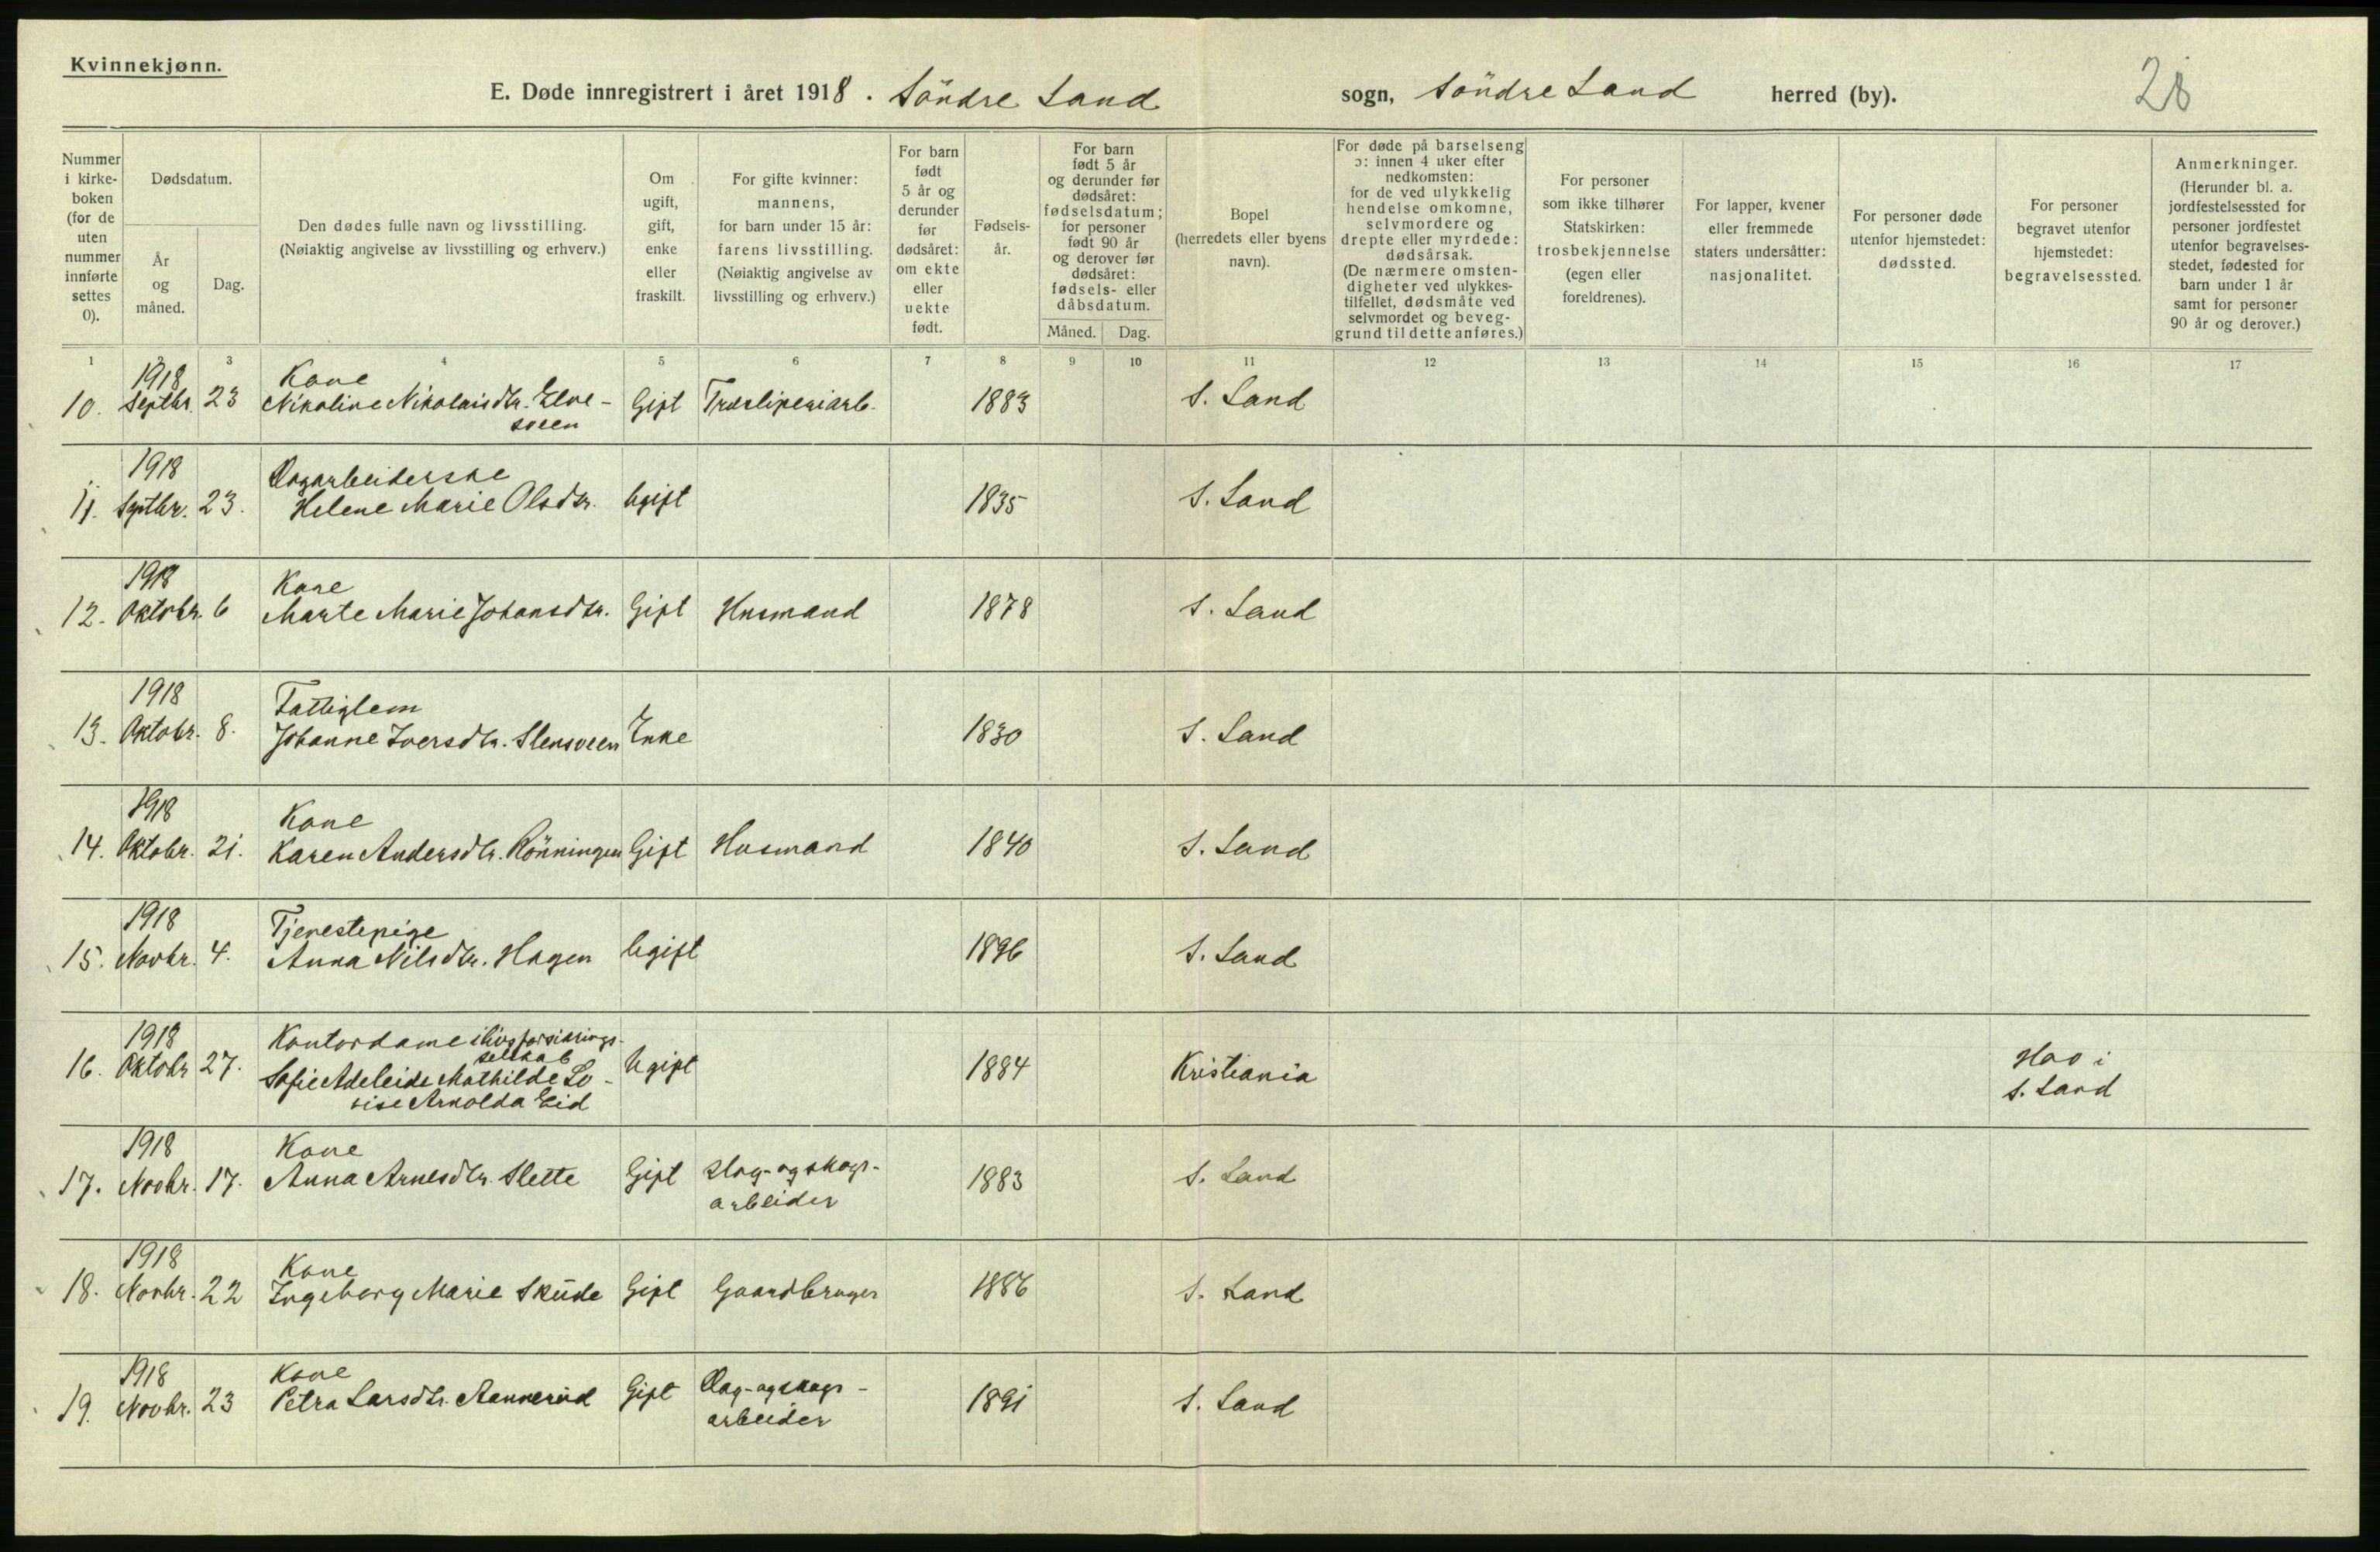 Kvinnekjønn.
E. Døde innregistrert i året 1918. Söndre Land sogn, Söndre Land herred (by). 28
Nummer i kirkeboken (for de uten nummer innførte settes 0).
Dødsdatum.
År og måned.
Dag.
Den dødes fulle navn og livsstilling. (Nøiaktig angivelse av livsstilling og erhverv.)
Om ugift, gift, enke eller fraskilt.
For gifte kvinner: mannens, for barn under 15 år: farens livsstilling. (Nøiaktig angivelse av livsstilling og erhverv.)
For barn født 5 år og derunder før dødsåret: om ekte eller uekte født.
Fødselsår.
For barn født 5 år og derunder før dødsåret: fødselsdatum; for personer født 90 år og derover før dødsåret: fødsels- eller dåbsdatum.
Måned. Dag.
Bopel (herredets eller byens navn).
For døde på barselseng ɔ: innen 4 uker efter nedkomsten: for de ved ulykkelig hendelse omkomne, selvmordere og drepte eller myrdede: dødsårsak. (De nærmere omstendigheter ved ulykkestilfellet, dødsmåte ved selvmordet og beveggrund til dette anføres.)
For personer som ikke tilhører Statskirken: trosbekjennelse (egen eller foreldrenes).
For lapper, kvener eller fremmede staters undersåtter: nasjonalitet.
For personer døde utenfor hjemstedet: dødssted.
For personer begravet utenfor hjemstedet: begravelsessted.
Anmerkninger. (Herunder bl. a. jordfestelsessted for personer jordfestet utenfor begravelsesstedet, fødested for barn under 1 år samt for personer 90 år og derover.)
1 2 3 4 5 6 7 8 9 10 11 12 13 14 15 16 17
1918 Kone
10. Septbr. 23 Nikoline Nikolaisdtr. Elve- Gift Træsliperiarb. 1883 S. Land
sveen
1918 Dagarbeiderske
11. Septbr. 23. Helene Marie Olsdtr. Ugift 1835 S. Land
1918 Kone
12. Oktobr. 6 Marte Marie Johansdtr. Gift Husmand 1878 S. Land
1918 Fattiglem
13. Oktobr. 8. Johanne Iversdtr. Stensveen Enke 1830 S. Land
1918 Kone
14. Oktobr. 21. Karen Andersdtr. Rönningen Gift Husmand 1840 S. Land
1918 Tjenestepige
15. Novbr. 4. Anna Nilsdtr. Hagen Ugift 1896 S. Land
1918 Kontordame i livsforsikrings-
selskab
16. Oktobr 27. Sofie Adeleide Mathilde Lo- Ugift 1884 Kristiania Hov i
vise Arnolda Eid S. Land
1918 Kone
17. Novbr. 17. Anna Arnesdtr. Slette Gift Dag- og skogs- 1883 S. Land
arbeider
1918 Kone
18. Novbr. 22 Ingeborg Marie Skute Gift Gaardbruger 1886 S. Land
1918 Kone
19. Novbr. 23 Petra Larsdtr. Aannerud Gift Dag- og skogs- 1891 S. Land
arbeider